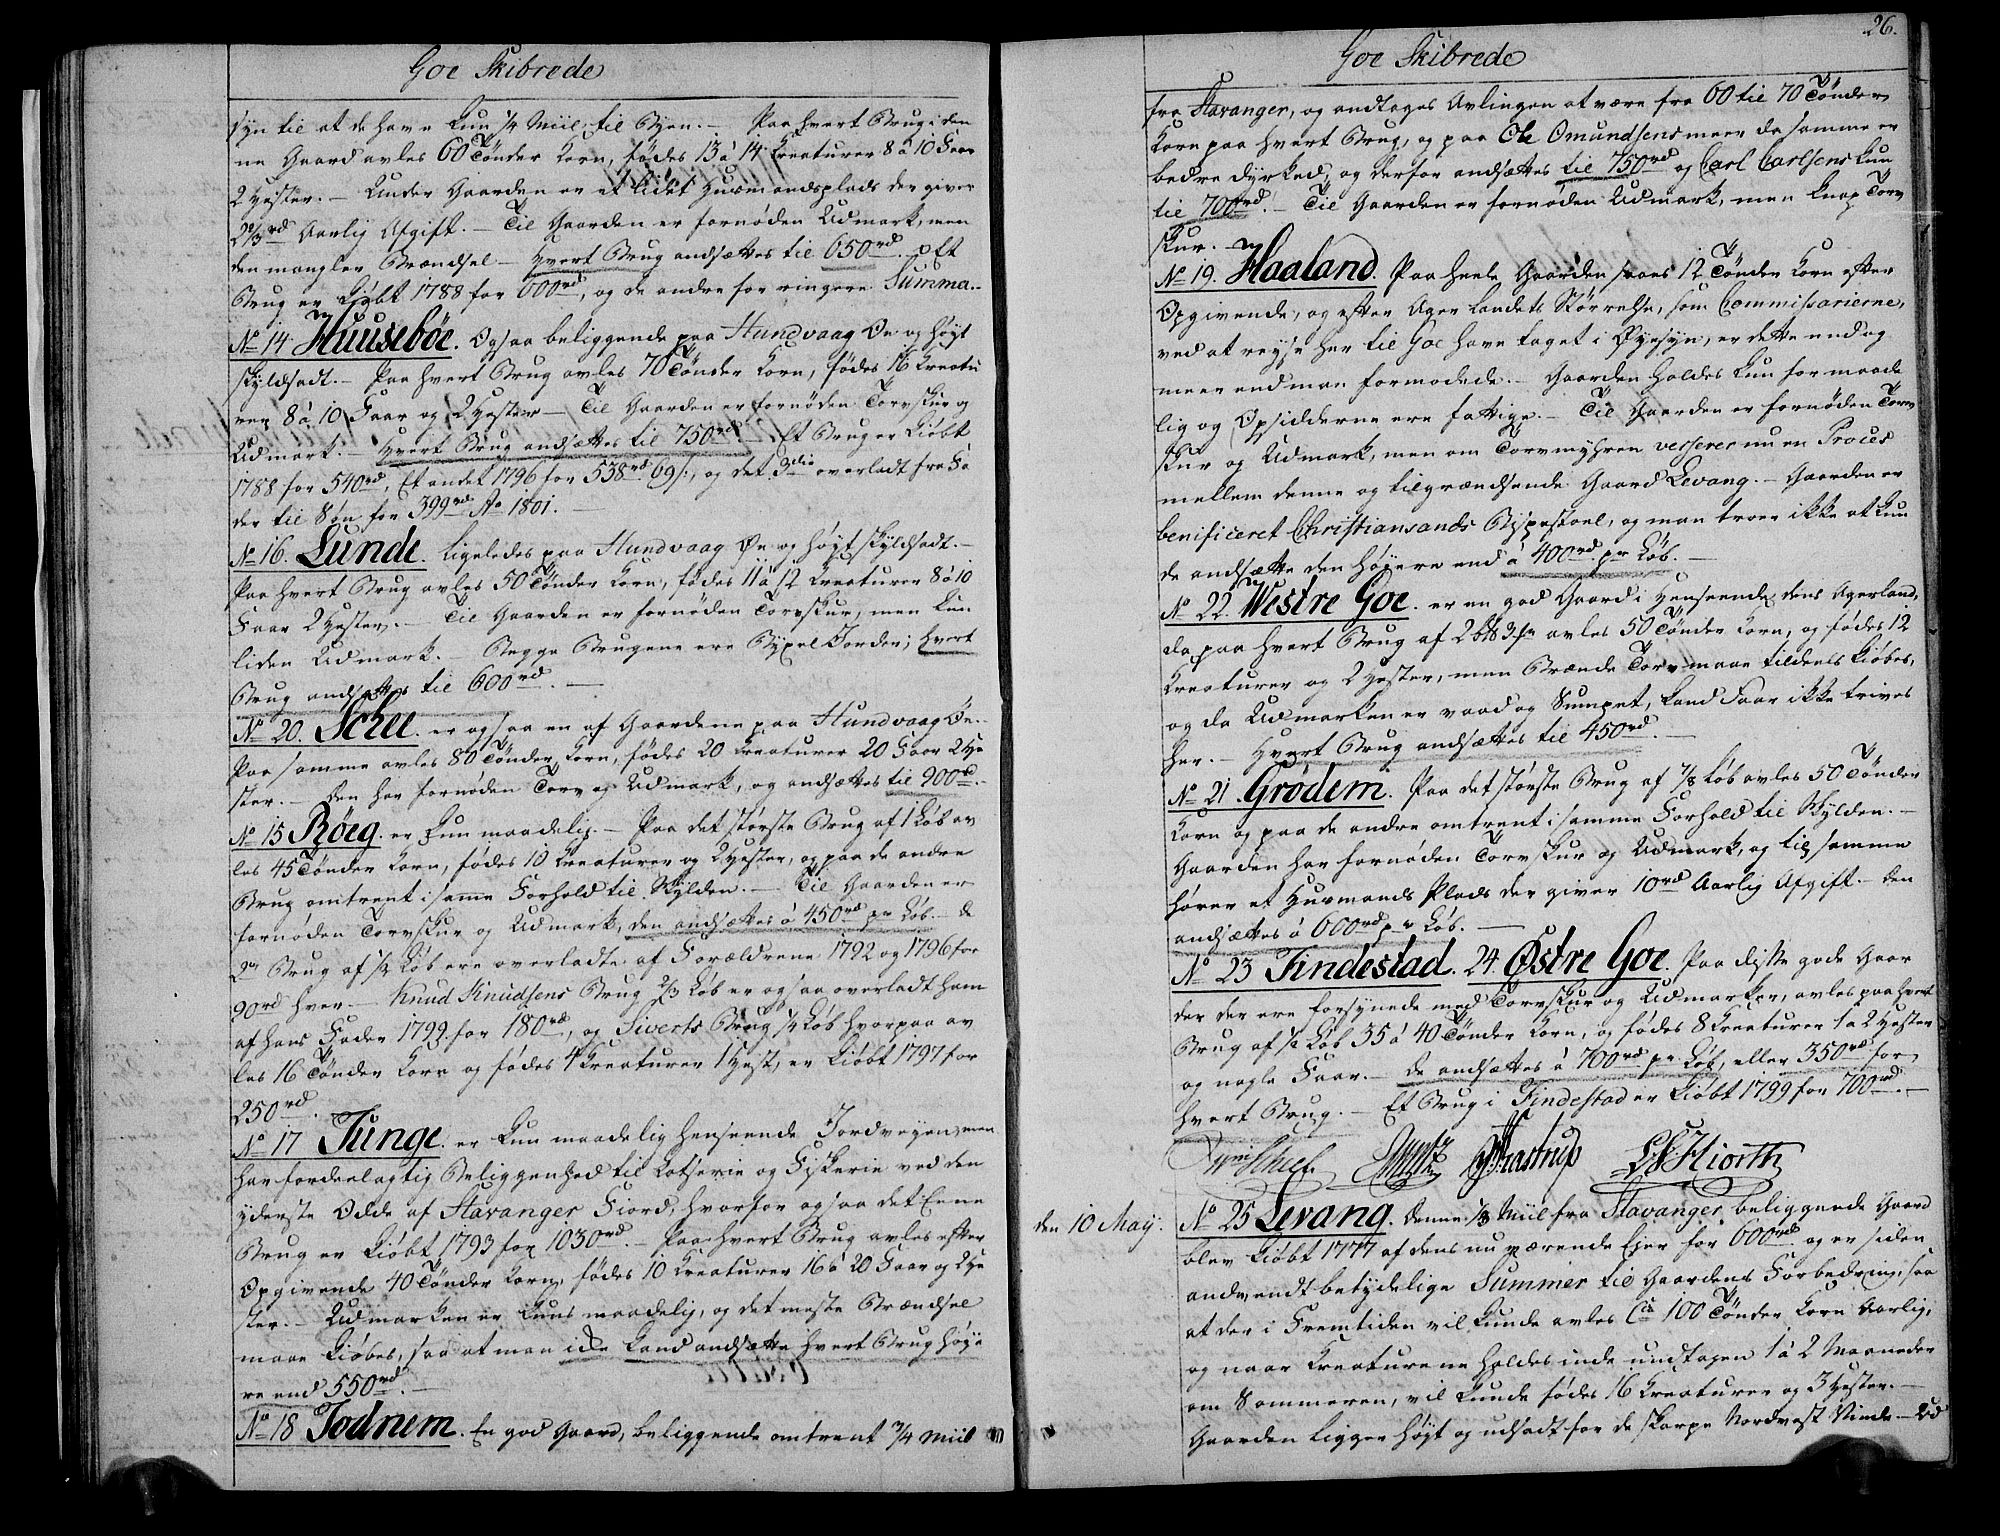 Goe Skibrede
syn til at de have kun 1/4 Miil til Byen. — Paa hvert Brug i den
ne Gaard avles 60 Tønder Korn, fødes 13 à 14 Kreaturer 8 à 10 Faar
2 Hester. — Under Gaarden er et lidet Huusmandsplads der giver
2 2/3 rd Aarlig Afgift. — Til Gaarden er fornøden Udmark, men
den mangler Brændsel — Hvert Brug andsættes til 650 rd. — Et
Brug er kiøbt 1788 for 600 rd, og de andre for ringere Summa. —
No 14 Huusebøe. Ogsaa beliggende paa Hundvaag Øe og høyt
skyldsadt. — Paa hvert Brug avles 70 Tønder Korn, fødes 16 Kreatu
rer 8 à 10 Faar og 2 Hester — Til Gaarden er fornøden Torvskur og
Udmark. — Hvert Brug andsættes til 750 rd — Et Brug er kiøbt
1788 for 540 rd, Et andet 1796 for 538 rd 69 s, og det 3die overladt fra Fa
der til Søn for 399 rd Ao 1801. —
No 16. Lunde. Ligeledes paa Hundvaag Øe og høyt skyldsadt. —
Paa hvert Brug avles 50 Tønder Korn, fødes 11 à 12 Kreaturer 8 à 10
Faar 2 Hester. — Til Gaarden er fornøden Torvskur, men kun
liden Udmark. — Begge Brugene ere Bøxel Jorder; hvert
Brug andsættes til 600 rd. —
No 20. Schee. er ogsaa en af Gaardene paa Hundvaag Øe. —
Paa samme avles 80 Tønder Korn, fødes 20 Kreaturer 20 Faar 2 He
ster. — Den har fornøden Torv og Udmark, og andsættes til 900 rd. —
No 15 Røeg. er kun maadelig. — Paa det største Brug af 1 Løb av
les 45 Tønder Korn, fødes 10 Kreaturer og 2 Hester, og paa de andre
Brug omtrent i samme Forhold til Skylden. — Til Gaarden er
fornøden Torvskur og Udmark, den andsættes à 450 rd pr Løb. — De
2de Brug af 1/2 Løb ere overladte af Forældrene 1792 og 1796 for
90 rd hver. — Knud Knudsens Brug 2/3 Løb er ogsaa overladt ham
af hans Fader 1799 for 180 rd, og Siverts Brug 1/4 Løb hvorpaa av
les 16 Tønder Korn og fødes 4 Kreaturer 1 Hest, er kiøbt 1797 for
250 rd.
No 17 Tunge. er kun maadelig henseende Jordveyen, men
har fordeelagtig Beliggenhed til Lotserie og Fiskerie ved den
yderste Odde af Stavanger Fiord, hvorfor ogsaa det Eene
Brug er kiøbt 1793 for 1030 rd. — Paa hvert Brug avles efter
Opgivende 40 Tønder Korn, fødes 10 Kreaturer 16 à 20 Faar og 2 He
ster. — Udmarken er kuns maadelig, og det meste Brændsel
maae kiøbes, saa at man icke kand andsætte hvert Brug høye
re end 550 rd. —
No 18 Todnem. En god Gaard, beliggende omtrent 3/4 Miil
26.
Goe Skibrede
fra Stavanger, og andtages Avlingen at være fra 60 til 70 Tønder
Korn paa hvert Brug, og paa Ole Omundsens meer da samme er
bedre dyrked, og derfor andsættes til 750 rd og Carl Carlsens kun
til 700 rd. — Til Gaarden er fornøden Udmark, men knap Torv
skur. —
No 19. Haaland. Paa heele Gaarden saaes 12 Tønder Korn efter
Opgivende, og efter Ager Landets Størrelse, som Commissarierne,
ved at reyse her til Goe have taget i Øyesyn, er dette endog
meer end man formodede. — Gaarden holdes kun for maade
lig og Opsidderne ere fattige. — Til Gaarden er fornøden Torv
skur og Udmark, men om Torvmyhren verserer nu en Proces
mellem denne og tilgrændsende Gaard Levang. — Gaarden er
benificeret Christiansands Bispestoel, og man troer ikke at kun
de andsætte den høyere end à 400 rd. pr Løb. —
No 22. Westre Goe. er en god Gaard i Henseende dens Agerland,
da paa hvert Brug af 2 b℔ 3 sp avles 50 Tønder Korn, og fødes 12
Kreaturer og 2 Hester, men Brænde Torv maae tildeels kiøbes,
og da Udmarken er vaad og Sumpet, kand Faar ikke trives
her. — Hvert Brug andsættes til 450 rd. —
No 21. Grødem. Paa det største Brug af 7/8 Løb avles 50 Tønder
Korn og paa de andre omtrent i samme Forhold til Skylden. —
Gaarden har fornøden Torvskur og Udmark, og til samme
hører et Huusmands Plads der giver 10 rd Aarlig Afgift. — Den
andsættes à 600 rd pr Løb. —
No 23 Findestad. 24. Østre Goe. Paa disse gode Gaar
der der ere forsynede med Torvskur og Udmarker, avles paa hvert
Brug af 1/2 Løb 35 à 40 Tønder Korn, og fødes 8 Kreaturer 1 à 2 Hester
og nogle Faar. — De andsættes à 700 rd pr Løb, eller 350 rd for
hvert Brug. — Et Brug i Findestad er kiøbt 1799 for 700 rd. —
Frastrup Hiorth
den 10 May. No 25 Levang. Denne 1/8 Miil fra Stavanger beliggende Gaard
blev kiøbt 1777 af dens nu værende Ejer for 600 rd og er siden
andvendt betydelige Summer til Gaardens Forbedring, saa
at der i Fremtiden vil kunde avles Ca 100 Tønder Korn Aarlig,
og naar Kreaturene holdes inde undtagen 1 à 2 Maaneder
om Sommeren, vil kunde fødes 16 Kreaturer og 3 Hester. —
Gaarden ligger høyt og udsadt for de skarpe Nordvest Vinde — Ud